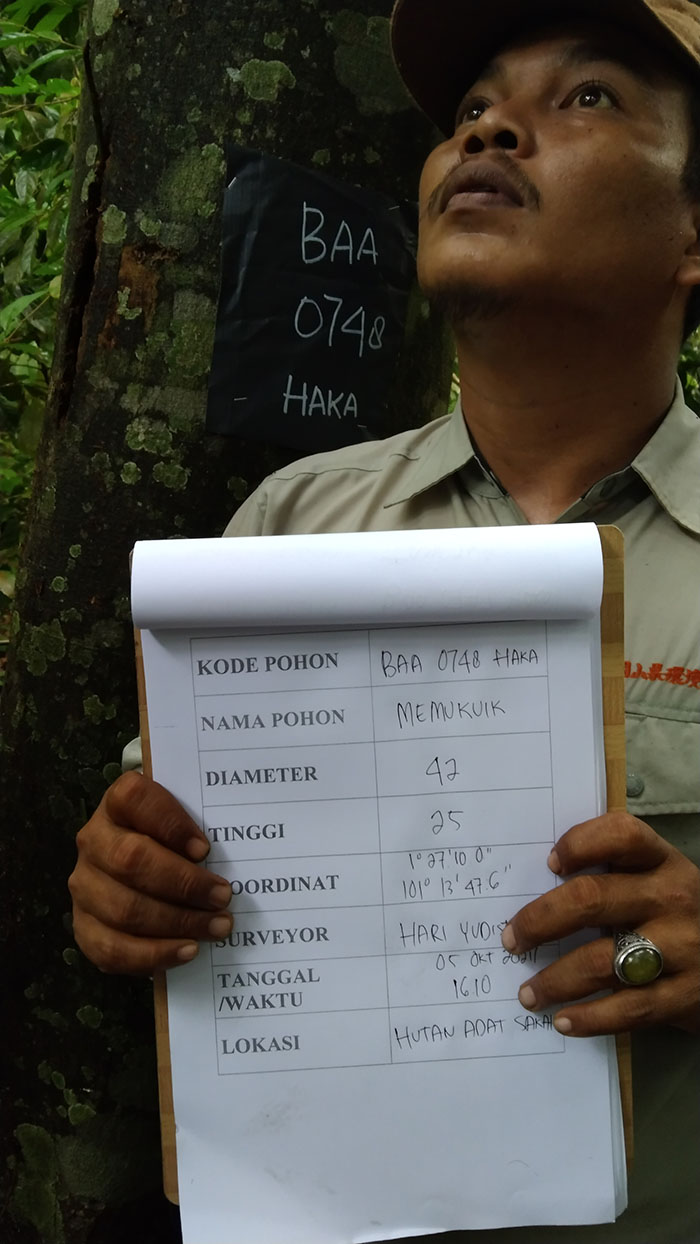 BAA
0748
HAKA
KODE POHON BAA 0748 HAKA
NAMA POHON MEMUKUIK
DIAMETER 42
TINGGI 25
OORDINAT 1° 27' 10 0"
101° 13' 47.6"
SURVEYOR HARI
TANGGAL 05 Okt
/WAKTU 16.10
LOKASI HUTAN ADAT SAKAI